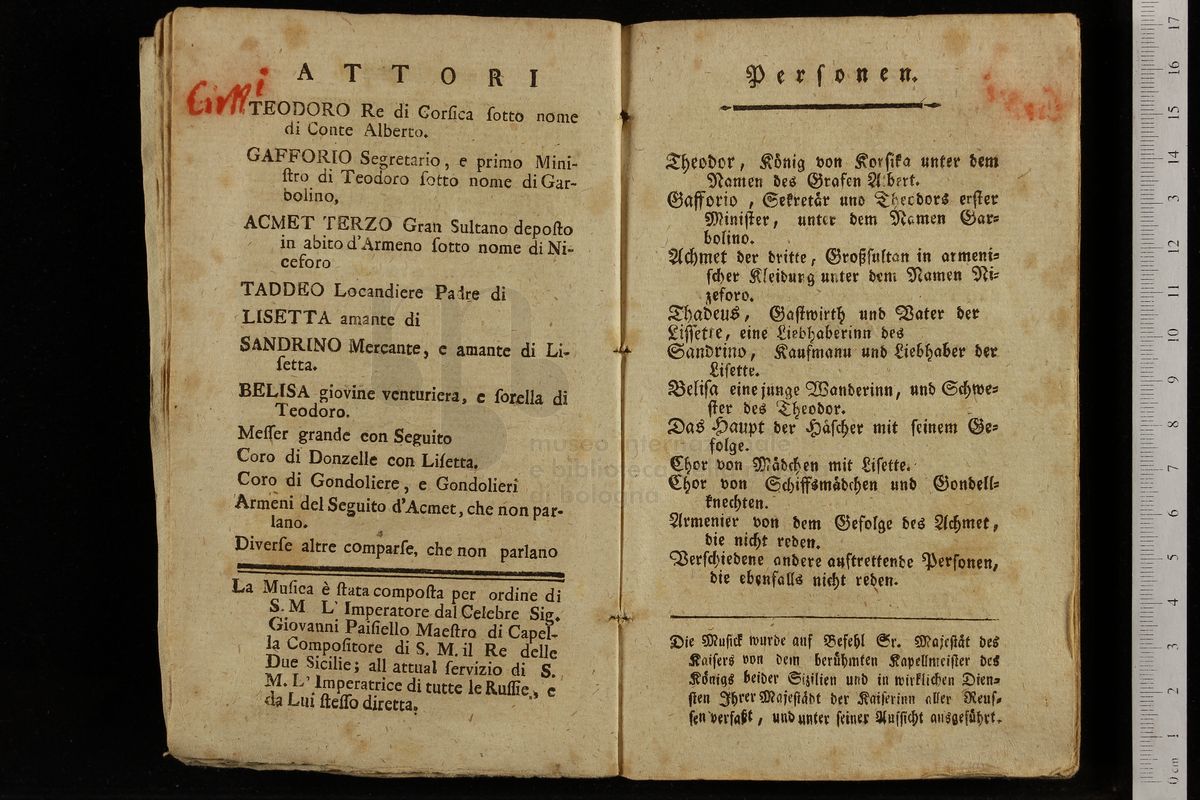 ATTORI
TEODORO Re di Corsica sotto nome
di Conte Alberto.
GAFFORIO Segretario, e primo Mini-
stro di Teodoro sotto nome di Gar-
bolino,
ACMET TERZO Gran Sultano deposto
in abito d'Armeno sotto nome di Ni-
ceforo
TADDEO Locandiere Padre di
LISETTA amante di
SANDRINO Mercante, e amante di Li-
setta.
BELISA giovine venturiera, e sorella di
Teodoro.
Messer grande con Seguito
Coro di Donzelle con Lisetta.
Coro di Gondoliere, e Gondolieri
Armeni del Seguito d'Acmet, che non par-
lano.
Diverse altre comparse, che non parlano
La Musica è stata composta per ordine di
S. M L' Imperatore dal Celebre Sig.
Giovanni Paisiello Maestro di Capel-
la Compositore di S. M. il Re delle
Due Sicilie; all attual servizio di S.
M. L' Imperatrice di tutte le Russie, e
da Lui stesso diretta.
Personen.
Theodor, König von Korsika unter dem
Namen des Grafen Albert.
Gafforio, Sekretär und Theodors erster
Minister, unter dem Namen Gar-
bolino.
Achmet der dritte, Großsultan in armeni-
scher Kleidung unter dem Namen Ni-
zeforo.
Thadeus, Gastwirth und Vater der
Lissette, eine Liebhaberinn des
Sandrino, Kaufmann und Liebhaber der
Lisette.
Belisa eine junge Wanderinn, und Schwe-
ster des Theodor.
Das Haupt der Häscher mit seinem Ge-
folge.
Chor von Mädchen mit Lisette.
Chor von Schiffsmädchen und Gondell-
knechten.
Armenier von dem Gefolge des Achmet,
die nicht reden.
Verschiedene andere auftrettende Personen,
die ebenfalls nicht reden.
Die Musick wurde auf Befehl Sr. Majestät des
Kaisers von dem berühmten Kapellmeister des
Königs beider Sizilien und in wirklichen Dien-
sten Ihrer Majestädt der Kaiserinn aller Reus-
sen verfaßt, und unter seiner Aufsicht ausgeführt.
museo internazionale
e biblioteca
di bologna